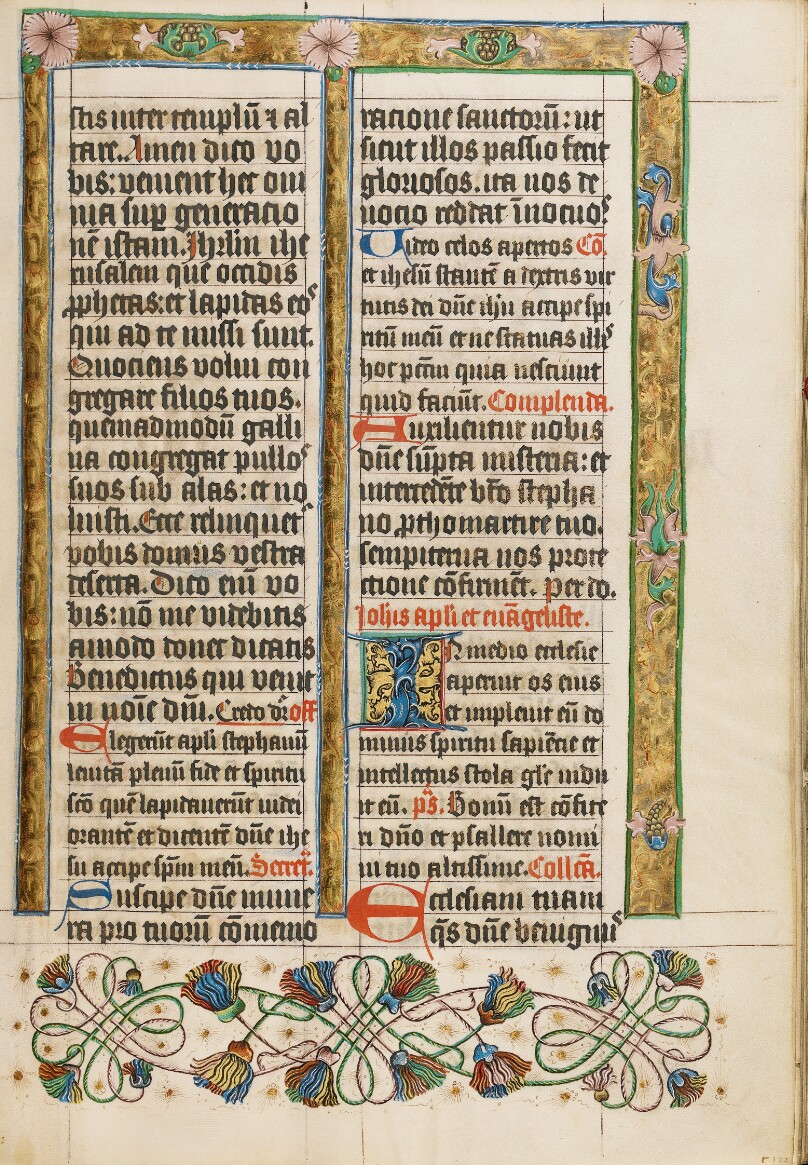 stis inter templū ⁊ al
tare. Amen dico vo
bis: venient hec om
nia sup generatio
nē istam. Jhrlm ihe
rusalem que occidis
ꝓphetas: et lapidas eoˢ
qui ad te missi sunt.
Quociens volui con
gregare filios tuos.
quemadmodū galli
na congregat pulloˢ
suos sub alas: et no
luisti. Ecce relinquetˢ
vobis domus vestra
deserta. Dico eni vo
bis: nō me videbitis
amodo donec dicatis
Benedictus qui venit
in noīe dm̄i. Credo dr̄ off
Elegerūt apl̄i stephanū
leuitā plenū fide et spiritu
scō quē lapidauerūt iudei
orantē et dicentē dn̄e ihe
su accipe sp̄m meū. Secret̄.
Suscipe dn̄e mune
ra pro tuorū cōmemo
racione sanctorū: ut
sicut illos passio fecit
gloriosos. ita nos de
uocio reddat īnocuoˢ
Video celos apertos Cō.
et ihesū stantē a dextris vir
tutis dei dn̄e ihu accipe spi
ritū meū et ne statuas illiˢ
hoc pctm̄ quia nesciunt
quid faciūt. Complenda.
Auxilientur nobis
dn̄e sūpta misteria: et
intercedēte bt̄o stepha
no ꝓthomartire tuo.
sempiterna nos prote
ctione cōfirmēt. Per do.
Joh̄is apl̄i et euāgeliste.
In medio ecclesie
aperuit os eius
et impleuit eū do
minus spiritu sapiēcie et
intellectus stola gl̄e indu
it eū. p̄s. Bonū est cōfite
ri dn̄o et psallere nomi
ni tuo altissime. Collcā.
Ecclesiam tuam
q̄s dn̄e benignuˢ